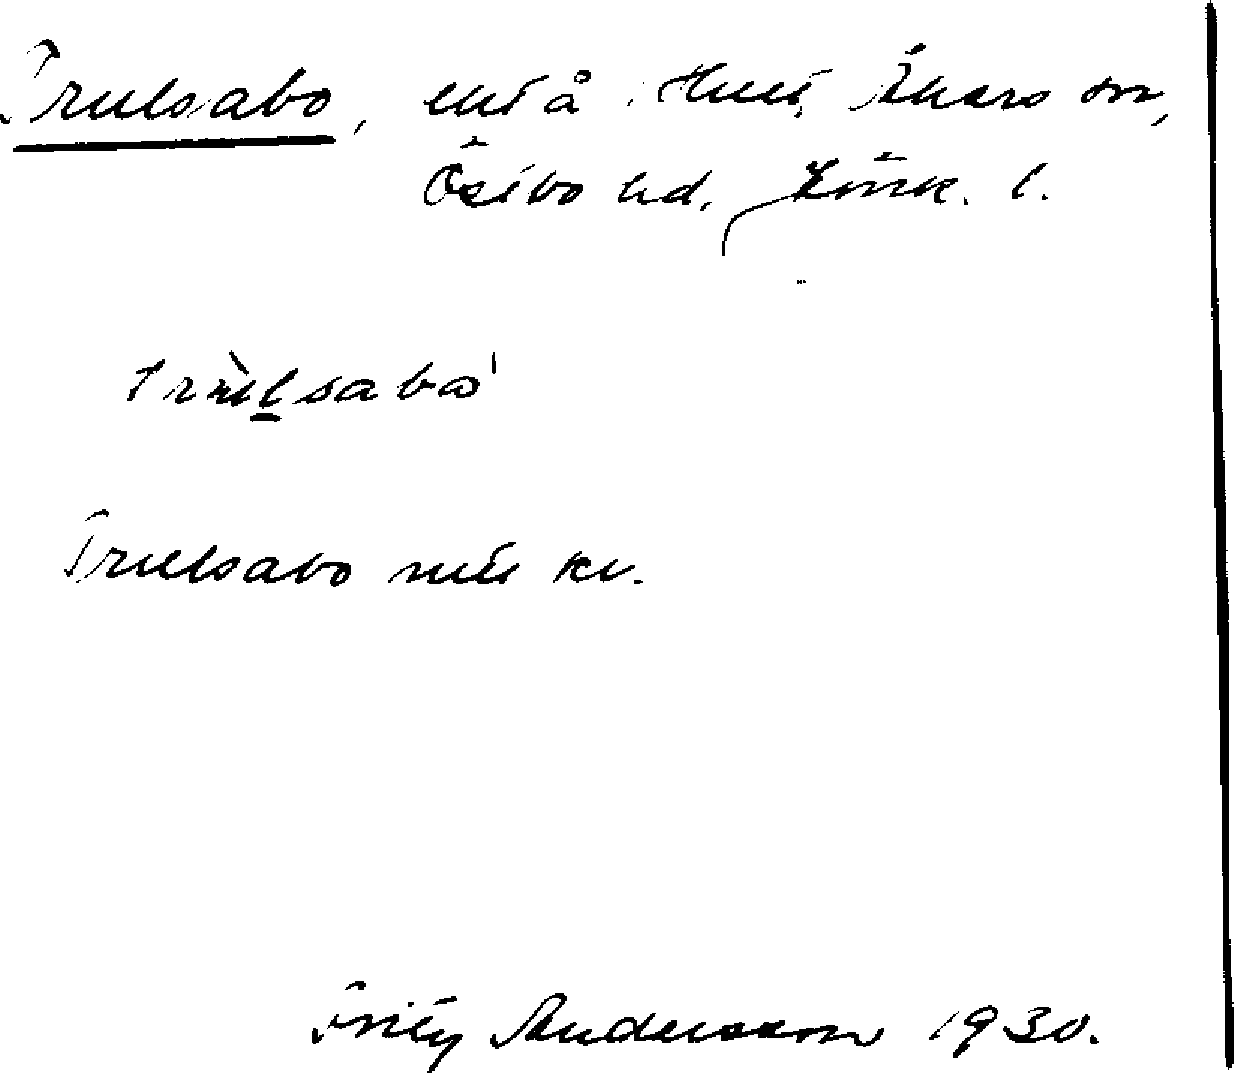 Trulsabo, ent å Hult, Åkers sn,
Östbo hd, Jönk. l.
trùlsabo'
Trulsabo mtr kv.
Fritz Andersson 1930.